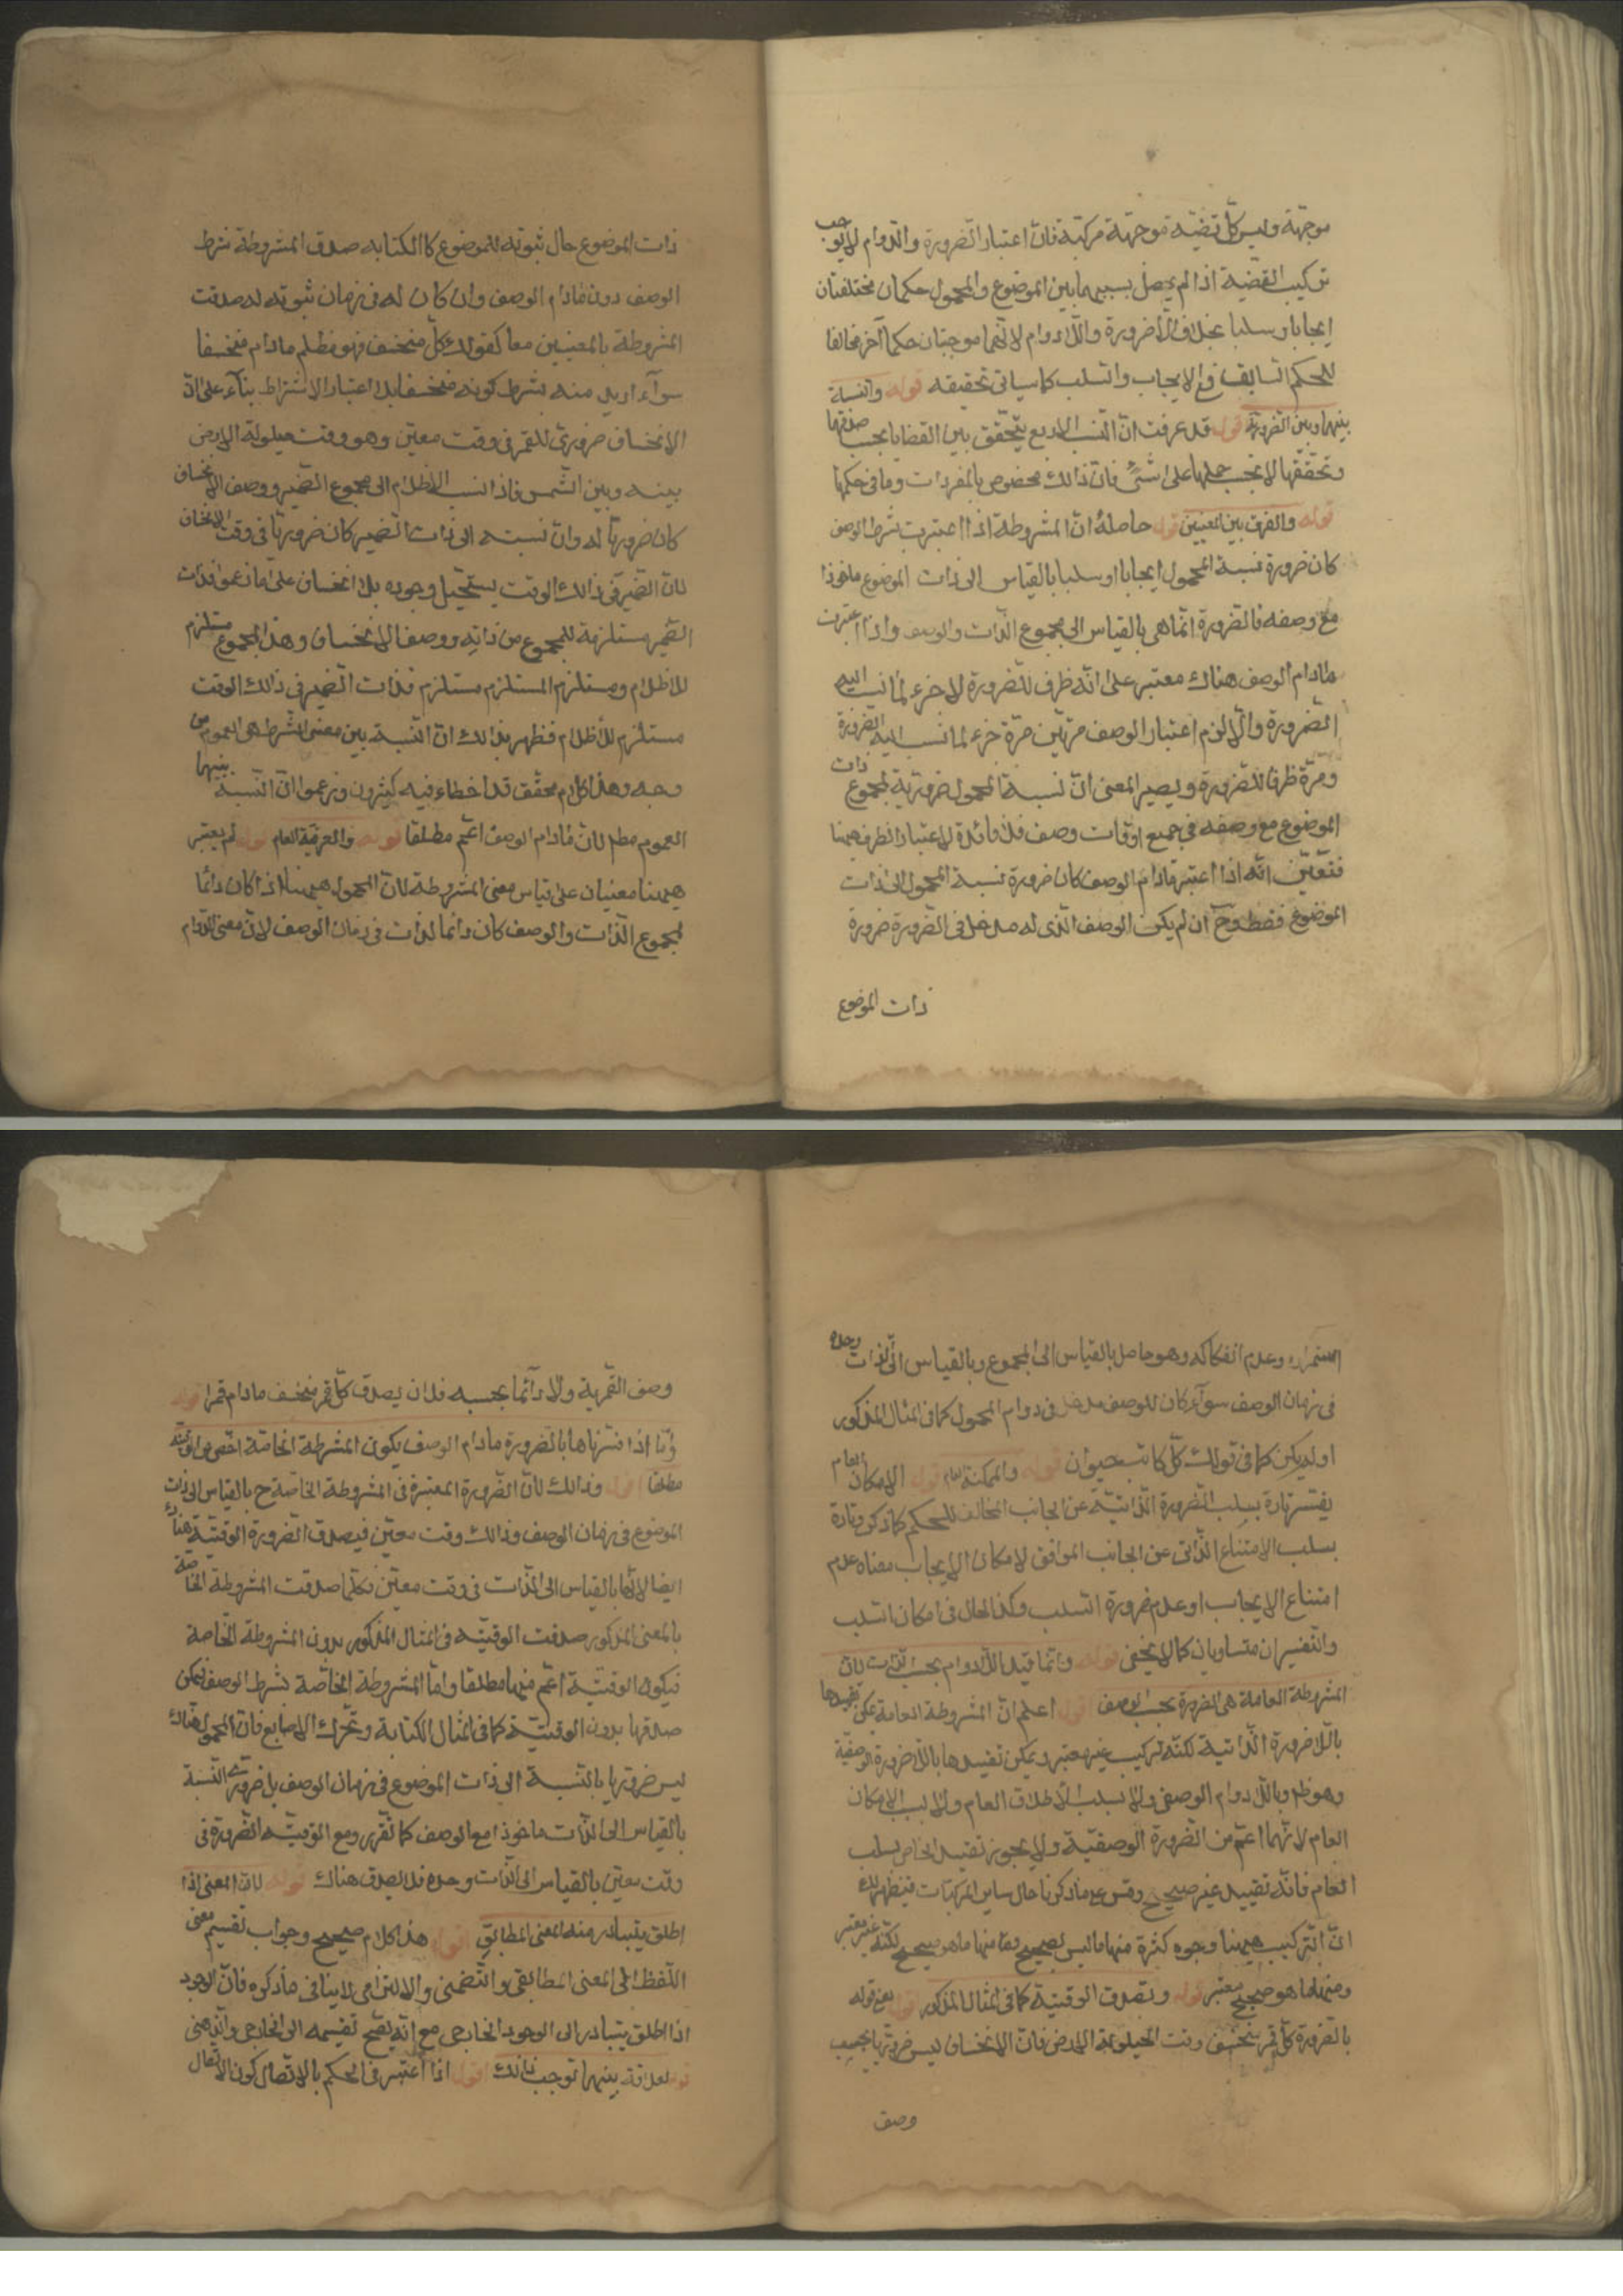 موجهة وليس كل قضية موجهة مركبة فان اعتبار الضرورة والدوام لا يوجب
تركيب القضية اذا لم يحصل بسببهما بين الموضوع والمحمول حكمان مختلفتان
ايجابا وسلبا بخلاف اللاضرورة واللادوام لانهما موجبتان حكما آخر مخالفا
للحكم السابق في الايجاب والسلب كما سياتي تحقيقه قوله والنسبة
بينها وبين الضرورية قوله قد عرفت ان النسب الاربع يتحقق بين القضايا بحسب صدقها
وتحققها لا بحسب حملها على شئ فان ذالك مخصوص بالمفردات وما في حكمها
قوله والفرق بين المعنيين قوله حاصله ان المشروطة اذا اعتبرت بشرط الوصف
كان ضرورة نسبة المحمول ايجابا او سلبا بالقياس الى ذات الموضوع ماخوذا
مع وصفه فالضرورة انما هي بالقياس الى مجموع الذات والوصف واذا اعتبرت
مادام الوصف هناك معتبر على انه ظرف للضرورة لا جزء لما نسب اليه
الضرورة والا لزم اعتبار الوصف مرتين مرة جزء لما نسب اليه الضرورة
ومرة ظرفا للضرورة ويصير المعنى ان نسبة المحمول ضرورية لمجموع ذات
الموضوع مع وصفه في جميع اوقات وصف فلا فائدة لاعتبار الظرف هيهنا
فتعين انه اذا اعتبر مادام الوصف كان ضرورة نسبة المحمول الى ذات
الموضوع فقط وح ان لم يكن الوصف الذى له مدخل في الضرورة ضرورة
ذات الموضوع
ذات الموضوع حال ثبوته للموضوع كالكتابه صدق المشروطة بشرط
الوصف دون مادام الوصف وان كان له في زمان ثبوته له صدقت
المشروطة بالمعنيين معا كقولك كل منخسف فهو مظلم مادام منخسفا
سوآء اريد منه بشرط كونه منخسفا بلا اعتبار الاشتراط بنآء على ان
الانخساف ضروري للقمر في وقت معين وهو وقت حيلولة الارض
بينه وبين الشمس فاذا نسب الاظلام الى مجموع القمر ووصف الانخساف
كان ضروريا له وان نسبته الى ذات القمر كان ضروريا في وقت الانخساف
لان القمر في ذالك الوقت يستحيل وجوده بلا انخساف على ما زعموا فذات
القمر مستلزمة للمجموع من ذاته ووصف الانخساف وهذا المجموع مستلزم
للاظلام ومستلزم المستلزم مستلزم فذات القمر في ذالك الوقت
مستلزم للأظلام فظهر بذالك ان النسبة بين معنى المشرط هى العموم من
وجه وهذا كلام محقق قد اخطاء فيه كثيرون وزعموا ان النسبة بينهما
العموم مطم لان مادام الوصف اعم مطلقا قوله والعرفية العام قوله لم يعتبر
هيهنا معنيان على قياس معنى المشروطة لان المحمول هيهنا اذا كان دائما
لمجموع الذات والوصف كان دائما لذات في زمان الوصف لان معنى الدوام
استمراره وعدم انفكاكه وهو حاصل بالقياس الى المجموع وبالقياس الى الذات وحده
في زمان الوصف سوآء كان للوصف مدخل في دوام المحمول كما في المثال المذكور
او لم يكن كما في قولك كل كاتب حيوان قوله والممكنة العام قوله الامكان العام
يفسر تارة بسلب الضرورة الذاتية عن الجانب المخالف للحكم كما ذكر وتارة
بسلب الامتناع الذاتى عن الجانب الموافق لامكان الايجاب معناه عدم
امتناع الايجاب او عدم ضرورة السلب وكذا الحال في امكان السلب
والتفسيران متساويان كما لا يخفى قوله وانما قيد اللادوام بحسب الذات لان
المشروطة العامة هى الضرورة بحسب الوصف قوله اعلم ان المشروطة العامة يمكن تقييدها
باللاضرورة الذاتية لكنه تركيب غير معتبر ويمكن تقييدها باللاضرورة الوصفية
وهو ظم وباللادوام الوصفى ولا بسلب الاطلاق العام ولا بسلب الامكان
العام لانهما اعم من الضرورة الوصفية ولا يجوز تقييد الخاص بسلب
العام فانه تقييد غير صحيح وقس على ما ذكرنا حال ساير المركبات فيظهر لك
ان التركيب هيهنا وجوه كثرة منها ما ليس بصحيح ومنها ما هو صحيح لكنه غير معتبر
ومنها ما هو صحيح معتبر قوله وتصدق الوقتية كما في المثال المذكور قوله يعنى قوله
بالضرورة كل قمر منخسف وقت الحيلولة الارض فان الانخساف ليس ضروريا بحسب
وصف
وصف القمرية ولا دآئما بحسبه فلان يصدق كل قمر منخسف مادام قمرا قوله
واما اذا فسرناها بالضرورة مادام الوصف يكون المشرطة الخاصة اخص من الوقتية
مطلقا اقول وذالك لان الضرورة المعتبرة في المشروطة الخاصة ح بالقياس الى ذات
الموضوع في زمان الوصف وذالك وقت معين فيصدق الضرورة الوقتية هناك
ايضا لانها بالقياس الى الذات في وقت معين فكلما صدقت المشروطة الخاصة
بالمعنى المذكور صدقت الوقتية في المثال المذكور بدون المشروطة الخاصة
فيكون الوقتية اعم منها مطلقا واما المشروطة الخاصة بشرط الوصف فيمكن
صدقها بدون الوقتية كما في المثال الكتابة وتحرك الاصابع فان المحمول هناك
ليس ضروريا بالنسبة الى ذات الموضوع في زمان الوصف بل ضرورى النسبة
بالقياس الى الذات ماخوذا مع الوصف كما تقرر ومع الوقتية الضرورة في
وقت معين بالقياس الى الذات وحده فلا يصدق هناك قوله لان المعنى اذا
اطلق يتبادر منه المعنى المطابقى اقول هذا كلام صحيح وجواب تقسيم معنى
اللفظ الى المعنى المطابقى والتضمنى والالتزامى لا ينافى ما ذكره فان الوجود
اذا اطلق يتبادر الى الوجود الخارجى مع انه يصح تقسيمه الى الخارجى والذهنى
قوله لعلاقة بينهما توجب ذالك اقول اذا اعتبر في الحكم بالاتصال كون الاتصال